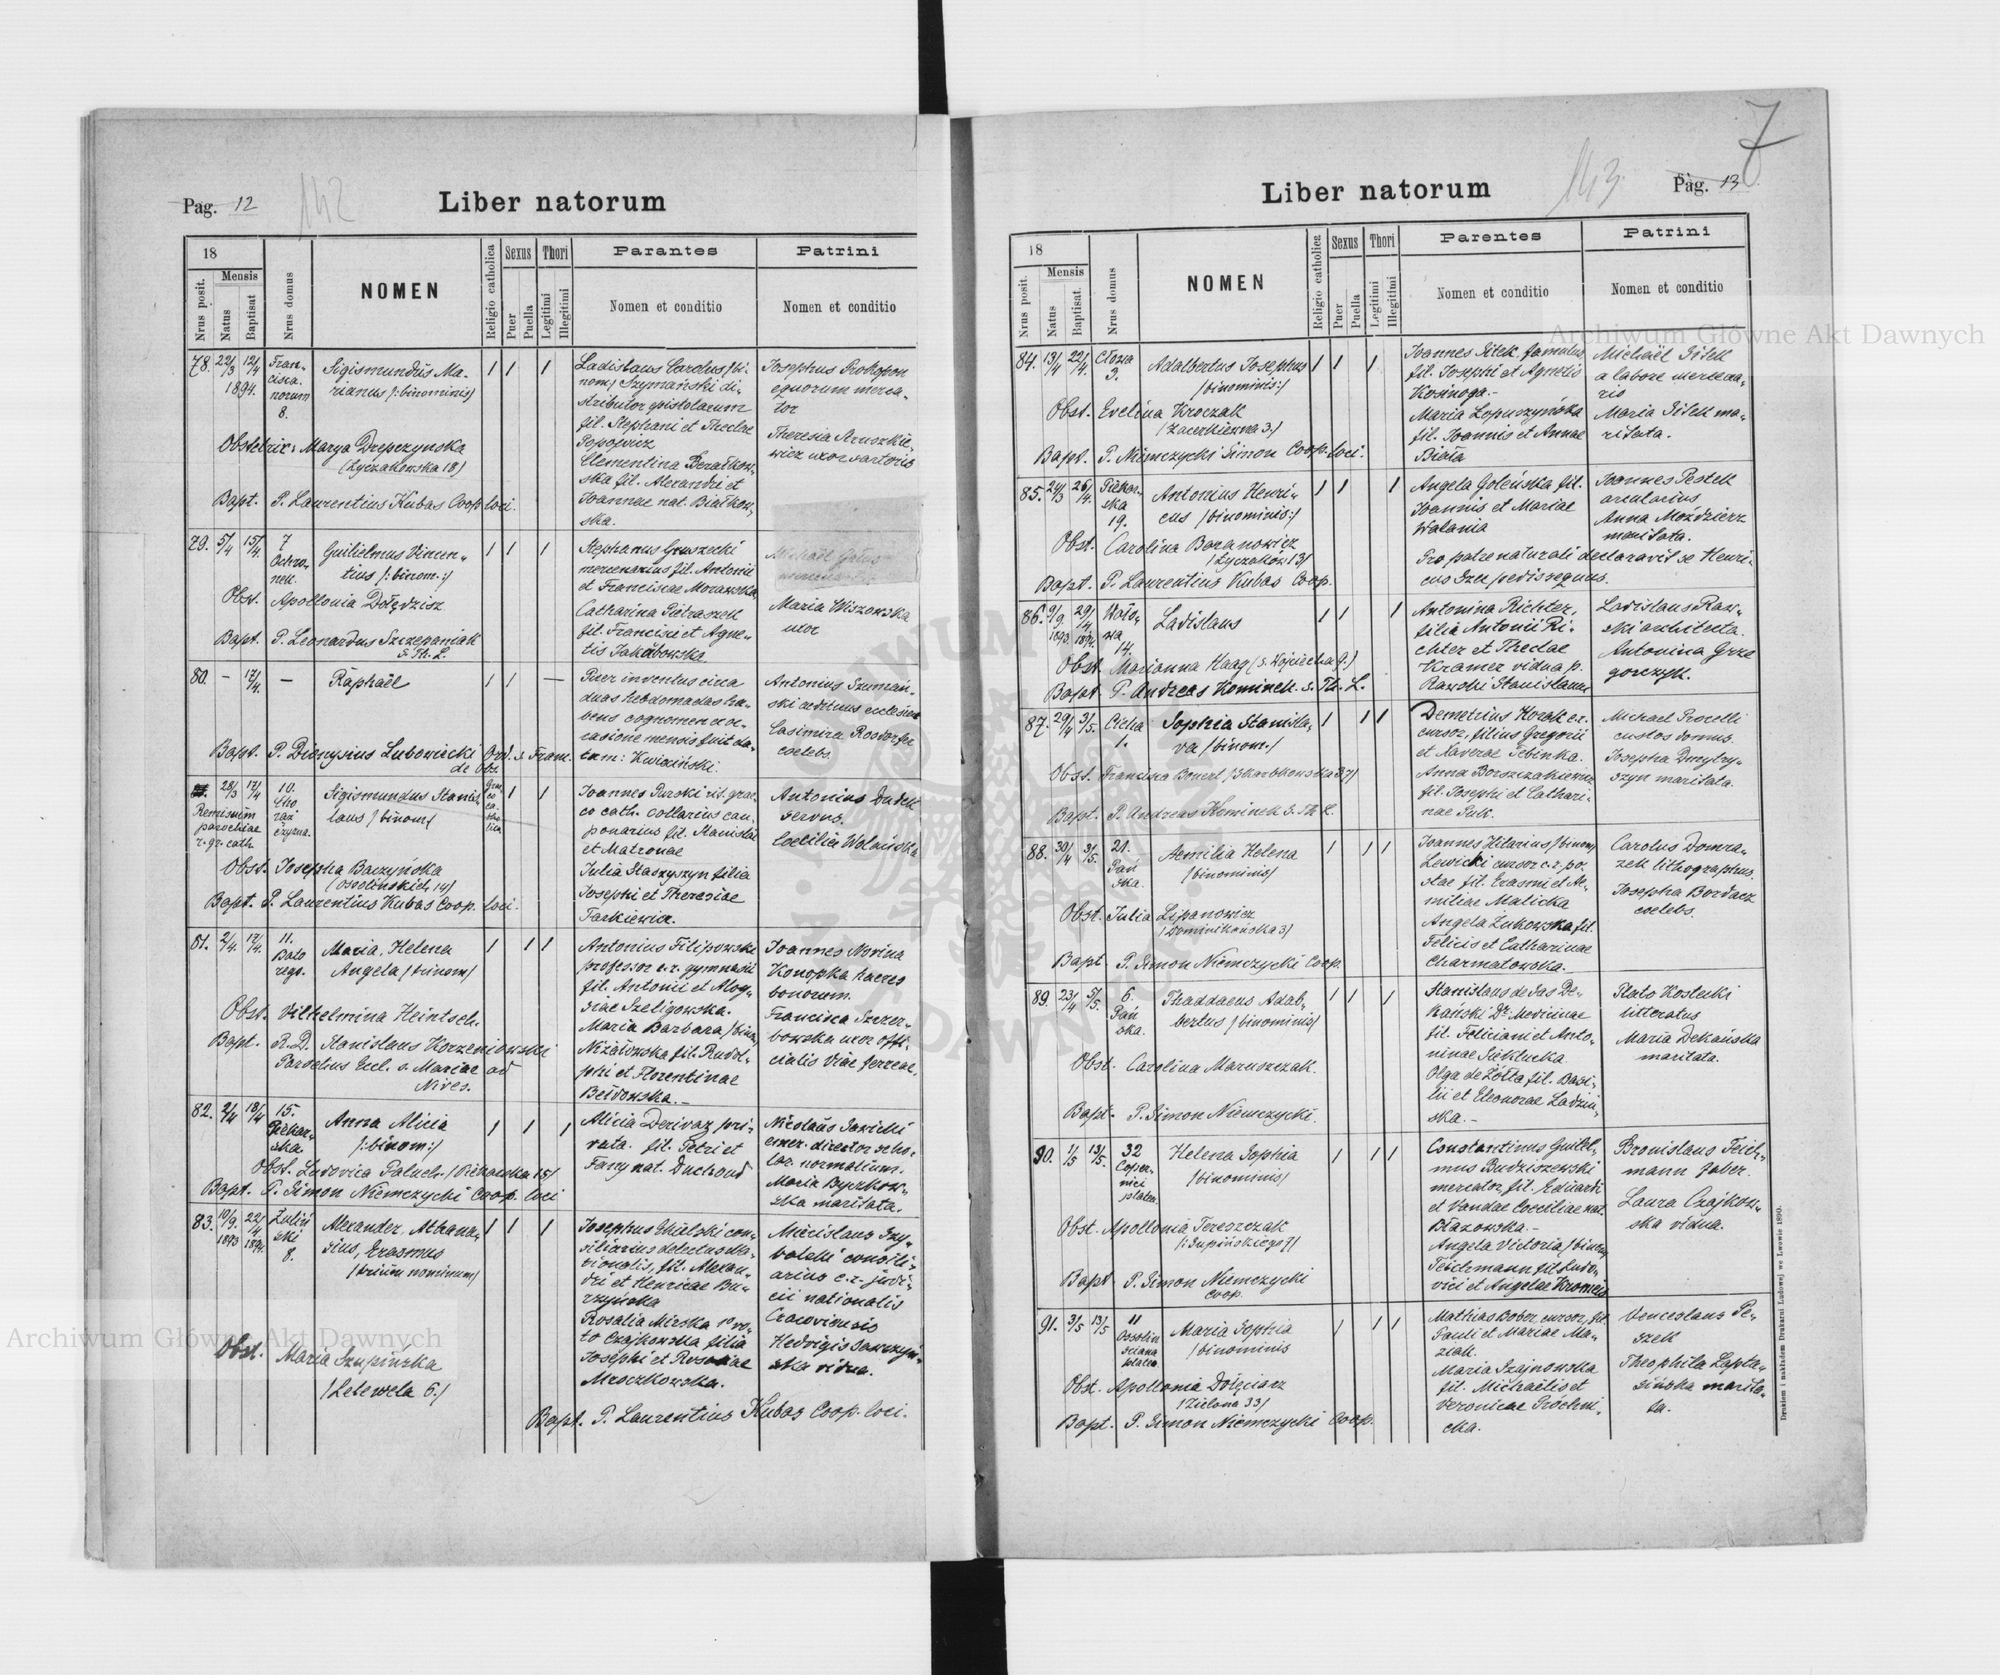 Pag. 12
142
Liber natorum
18
Mensis
Nrus posit.
Natus
Baptisat
Nrus domus
NOMEN
Religio catholica
Sexus
Puer
Puella
Thori
Legitimi
Illegitimi
Parantes
Nomen et conditio
Patrini
Nomen et conditio
78. 22/3 12/4 1894.
Fran-
cisca-
norum
8.
Sigismundus Ma-
rianus /:binominis/
Obstetrix: Marya Drepczynska
(Łyczakowska 18)
Bapt. P. Laurentius Kubas Coop loci.
Ladislaus Carolus /bi-
nom/ Szymański di-
stributor epistolarum
fil. Stephani et Theclae
Popowicz
Clementina
ska fil. Alexandri et
Joannae nat. Białkow-
ska.
Josephus Prokopon
equorum merca-
tor
Theresia
wicz uxor sartoris
79. 5/4 15/4
7
Ochro-
nek.
Guilielmus Vincen-
tius /:binom.:/
Obst. Apollonia Dołędzisz
Bapt. P. Leonardus Szczepaniak
S. Th. L.
Stephanus Gruszecki
mercenarius fil. Antonii
et Franciscae Morawska
Catharina Pietraszek
fil. Francisci et Agne-
tis Jakubowska
Maria Wiszowska
uxor
80. — 17/4 —
Raphaël
Bapt. P. Dionysius Lubowiecki Ord. S. Franc.
de Obs.
Puer inventus circa
duas hebdomadas ha-
bens cognomen oc-
casione mensis fuit da-
tum: Kwieciński.
Antonius Szumań-
ski aedituus ecclesiae
Casimira Rosdorfer
coelebs.
28/3 17/4
Remissum
parochiae
r. gr. cath
10.
Cho
rąż
czyzna.
Sigismundus Stanis-
laus /binom/
Grae
co
ca-
tho
lica
Obst. Josepha Baczyńska
(Ossolińskich 14)
Bapt. P. Laurentius Kubas Coop. loci.
Joannes Purski rit. grae-
co cath. collarius cau-
ponarius fil. Stanislai
et Matronae
Julia Staszyszyn filia
Josephi et Theresiae
Tarkiewicz.
Antonius Dudek
servus.
Coecilia Wolańska
81. 2/4 17/4.
11.
Bato
rego.
Maria, Helena
Angela /trinom/
Obst. Vilhelmina Heintsch.
Bapt. R.D. Stanislaus Korzeniowski
Parochus Eccl. s. Mariae ad
Nives.
Antonius Filipowski
professor c.r. gymnasii
fil. Antonii et Aloy-
siae Szeligowska.
Maria Barbara /binom/
Niżałowska fil. Rudol-
phi et Florentinae
Bełdowska.—
Joannes Novina
Konopka haeres
bonorum.
Francisca Szczer-
bowska uxor offi-
cialis viae ferreae.
82. 2/4 18/4
15.
Piekar-
ska.
Anna Alicia
/:binom:/
Obst. Ludovica Paluch. /Piekarska 15/
Bapt. P. Simon Niemczycki Coop. loci
Alicia Derivaz pri-
vata. fil. Petri et
Fany nat. Duchoud
Nicolaus Sawicki
emer. director scho-
lar. normalium.
Maria Byczkow-
ska maritata.
83. 10/9. 1893 22/4 1894.
Zuliń
ski
8.
Alexander, Athana-
sius, Erasmus
/trium nominum/
Obst. Maria Szupińska
/Lelewela 6./
Bapt. P. Laurentius Kubas Coop. loci.
Josephus Skalski con-
siliarius delectus na-
tionalis, fil. Alexan-
dri et Henricae Bu-
rzyńska
Rosalia Mirska 1º vo-
to Czajkowska filia
Josephi et Rosaliae
Mroczkowska.
Miecislaus Szy-
balski consili-
arius c.r. judi-
cii nationalis
Cracoviensis
Hedvigis Sawczyn-
ska vidua.
7
143.
Pag. 13
Liber natorum
18
Mensis
Nrus posit.
Natus
Baptisat.
Nrus domus
NOMEN
Religio catholica
Sexus
Puer
Puella
Thori
Legitimi
Illegitimi
Parentes
Nomen et conditio
Patrini
Nomen et conditio
84. 13/4 22/4.
Cłowa
3.
Adalbertus Josephus
/binominis:/
Obst. Evelina Kroczak
/Zacerkiewna 3:/
Bapt. P. Niemczycki Simon Coop. loci.
Joannes Sitek famulus
fil. Josephi et Agnetis
Kosinoga.—
Maria Łopuszyńska
fil. Joannis et Annae
Michaël Sitek
a labore mercena-
rio
Maria Sitek ma-
ritata.
85. 24/3 26/4.
Piekar-
ska
19.
Antonius Henri-
cus /binominis:/
Obst. Carolina Baranowicz
/Łyczaków 13/
Bapt. P. Laurentius Kubas Coop.
Angela Goleńska fil.
Joannis et Mariae
Walania
Pro patre naturali declaravit se Henri-
cus pedissequus.
Joannes Pestek
arcularius
Anna Moździerz
maritata.
86. 9/9. 1893. 29/4 1894.
Wało-
wa
14.
Ladislaus
Obst. Marianna Haag (S. Wojciecha 9.)
Bapt. P. Andreas Kominek. S. Th. L.
Antonina Richter,
filia Antonii Ri-
chter et Theclae
Kramer vidua p.
Rawski Stanislaum
Ladislaus Raw-
ski architecta.
Antonina Grze
gorczyk.
87. 29/4 3/5.
Cicha
1.
Sophia Stanisla-
va /binom./
Obst. Francisca Bauert /Skarbkowska 37/
Bapt. P. Andreas Kominek S. Th L.
Demetrius Korak c.r.
cursor, filius Gregorii
et Xaverae Tebinka.
Anna Borszczakiewicz
fil. Josephi et Cathari-
nae Puk.
Michael Procelli
custos domus.
Josepha Dmytry-
szyn maritata.
88. 30/4 3/5.
21.
Pań
ska.
Aemilia Helena
/binominis/
Obst. Julia Lipanowicz
/Dominikańska 3/
Bapt. P. Simon Niemczycki Coop.
Joannes Hilarius /binom/
Lewicki cursor c.r. po-
stae fil. Erasmi et Ae-
miliae Malicka
Angela Żukowska fil.
Felicis et Catharinae
Charmatowska.
Carolus Domra-
zek lithographus.
Josepha Bordacz
coelebs.
89. 23/4 5/5.
6.
Pań
ska.
Thaddaeus Adal-
bertus /binominis/
Obst. Carolina Maruszczak.
Bapt. P. Simon Niemczycki.
Stanislaus de Sas De-
kański Dr Medicinae
fil. Feliciani et Anto-
ninae Siekłucka
Olga de Zółta fil. Basi-
lii et Eleonorae Ladziń-
ska.—
Plato Kostecki
litteratus
Maria Dekańska
maritata.
90. 1/5 13/5.
32
Coper-
nici
platea.
Helena Sophia
/binominis/
Obst. Apollonia Tereszczak
/:Supińskiego 7/
Bapt P. Simon Niemczycki
Coop.
Constantinus Guilel-
mus Budziszewski
mercator, fil. Eduardi
et Vandae Coeciliae nat.
Błażowska.—
Angela Victoria /binom/
Teichmann fil. Ludo-
vici et Angelae
Bronislaus Teich-
mann faber.
Laura Czajkow-
ska vidua.
91. 3/5 13/5
11
Ossolin
sciana
platea.
Maria Sophia
/binominis
Obst. Apollonia Dolęciarz
/Zielona 33/
Bapt. P. Simon Niemczycki Coop.
Mathias Bober, cursor, fil.
Pauli et Mariae Ma-
ziak.
Maria Szajnowska
fil. Michaëlis et
Veronicae Próchni-
cka.
Venceslaus Pe-
szek
Theophila Lapta-
sińska marita-
ta.
Drukiem i nakładem Drukarni Ludowej we Lwowie 1890.
Archiwum Główne Akt Dawnych
Archiwum Główne Akt Dawnych